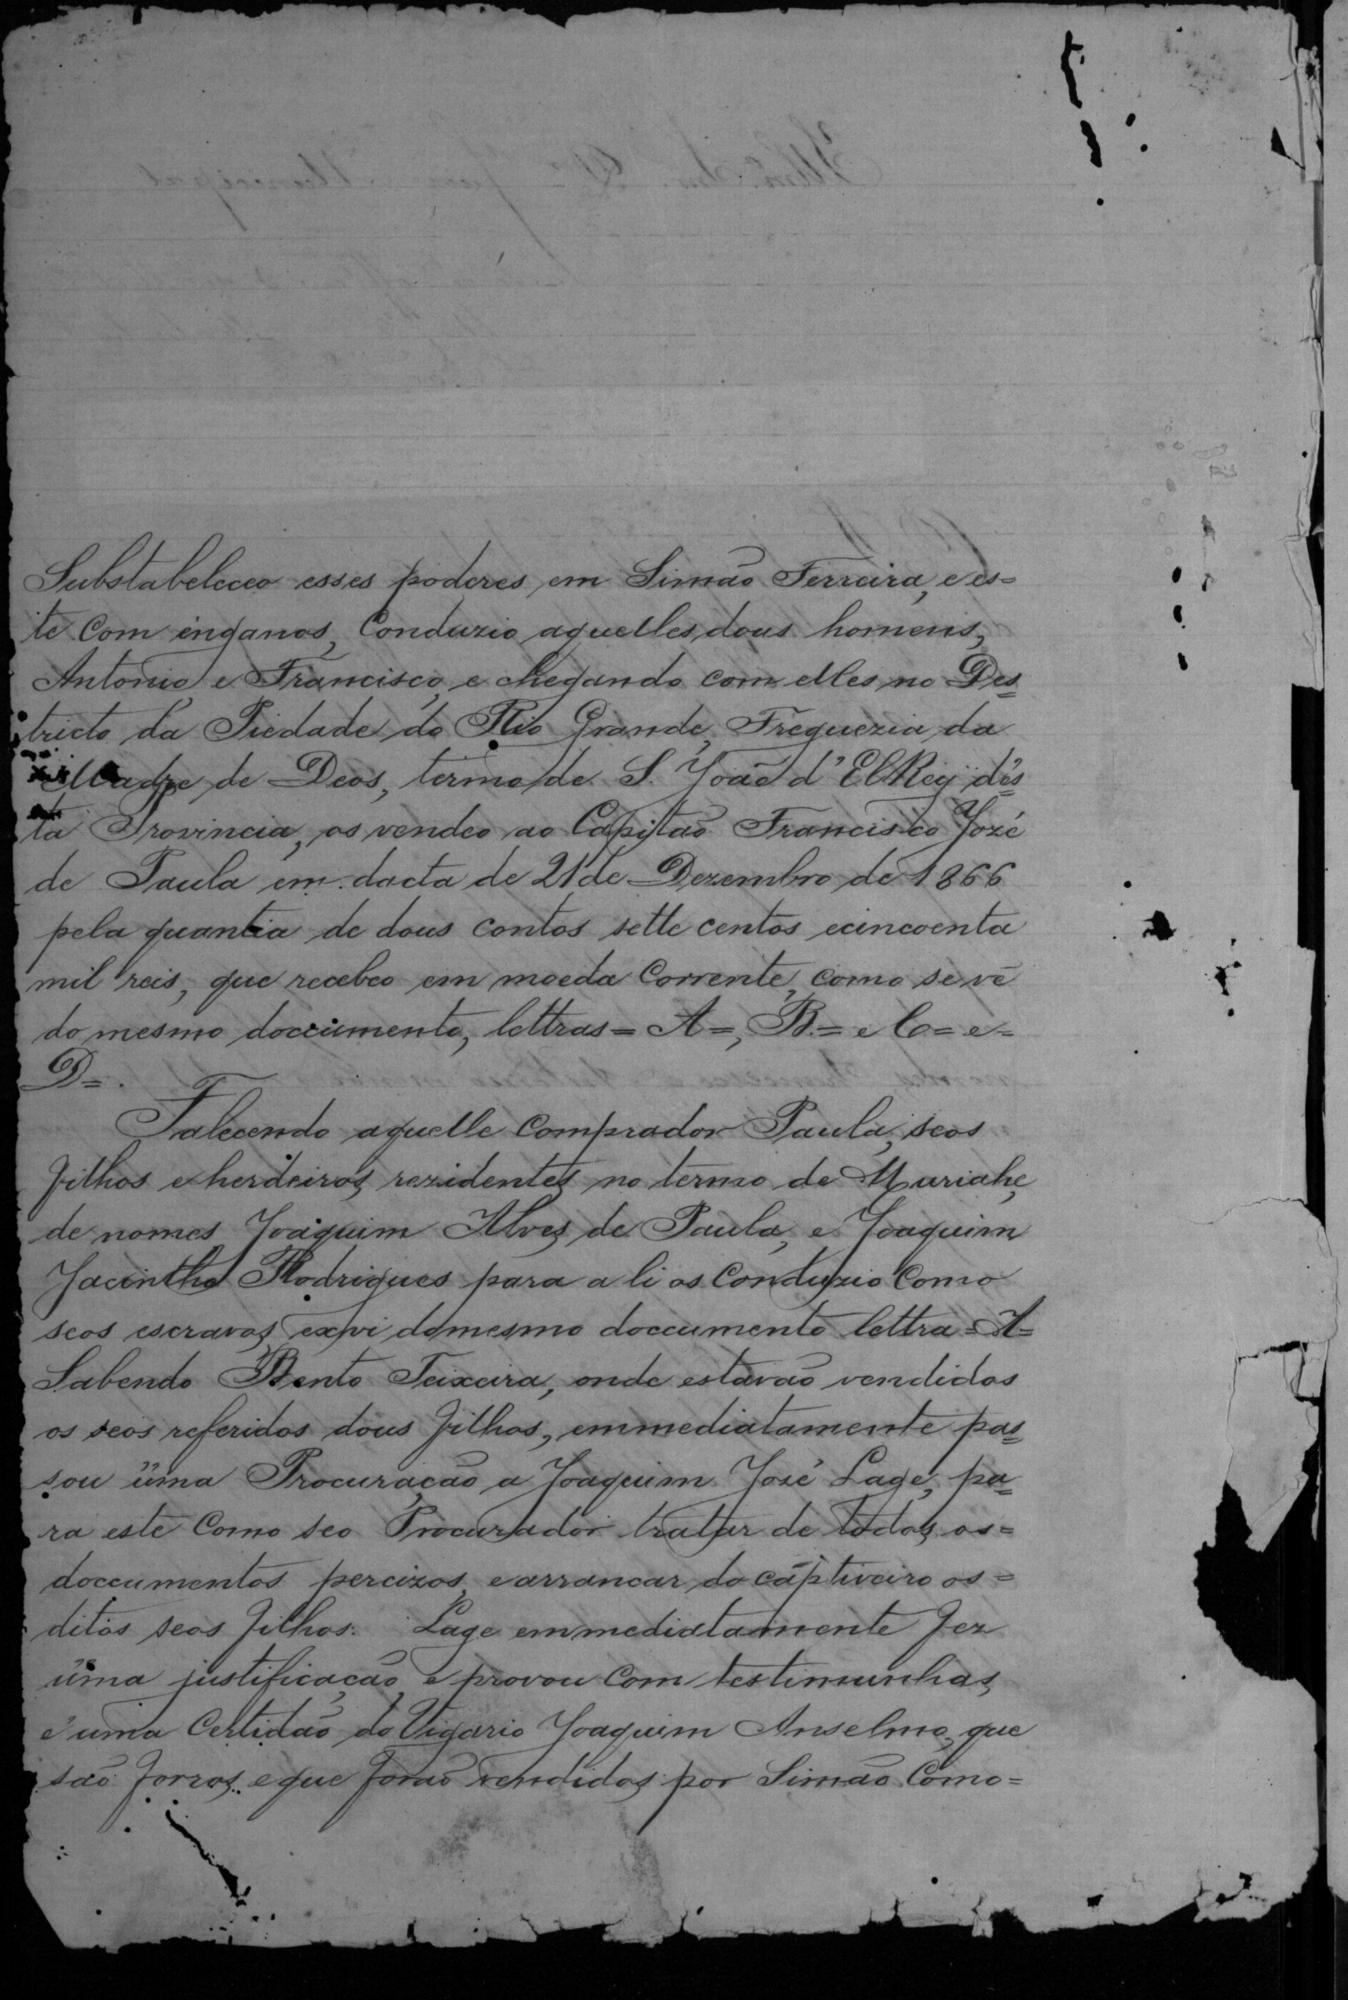 Substabeleceo esses poderes em Simão Ferreira, e es=
te com enganos, Conduzio aquelles dous homens,
Antonio e Francisco, e chegando com elles no Des=
tricto da Piedade do Rio Grande, Freguezia da
Madre de Deos, termo de S. João d'El Rey dés=
ta Provincia, os vendeo ao Capitão Francisco Jozé
de Paula em dacta de 21 de Dezembro de 1866
pela quantia de dous contos sette centos ecincoenta
mil reis, que recebeo em moeda Corrente, como se vê
do mesmo doccumento, lettras = A =, B. = e C = e =
D =.
Falecendo aquelle Comprador Paula, seos
filhos e herdeiros, rezidentes no termo de Muriahe,
de nomes Joaquim Alves de Paula, e Joaquim
Jacintho Rodrigues para a li os Conduzio Como
seos escravos, exvi domesmo doccumento lettra = A =
Sabendo Bento Teixeira, onde estavão vendidos
os seos referidos dous filhos, emmediatamente pas=
sou uma Procuração a Joaquim José Lage, pa=
ra este Como seo Procurador tratar de todos os =
doccumentos percizos, e arrancar do cáptiveiro os =
ditos seos filhos. Lage emmediatamente fez
uma justificação, e provou Com testimunhas,
e uma Certidão do Vigario Joaquim Anselmo, que
são forros, e que forão vendidos por Simão Como =